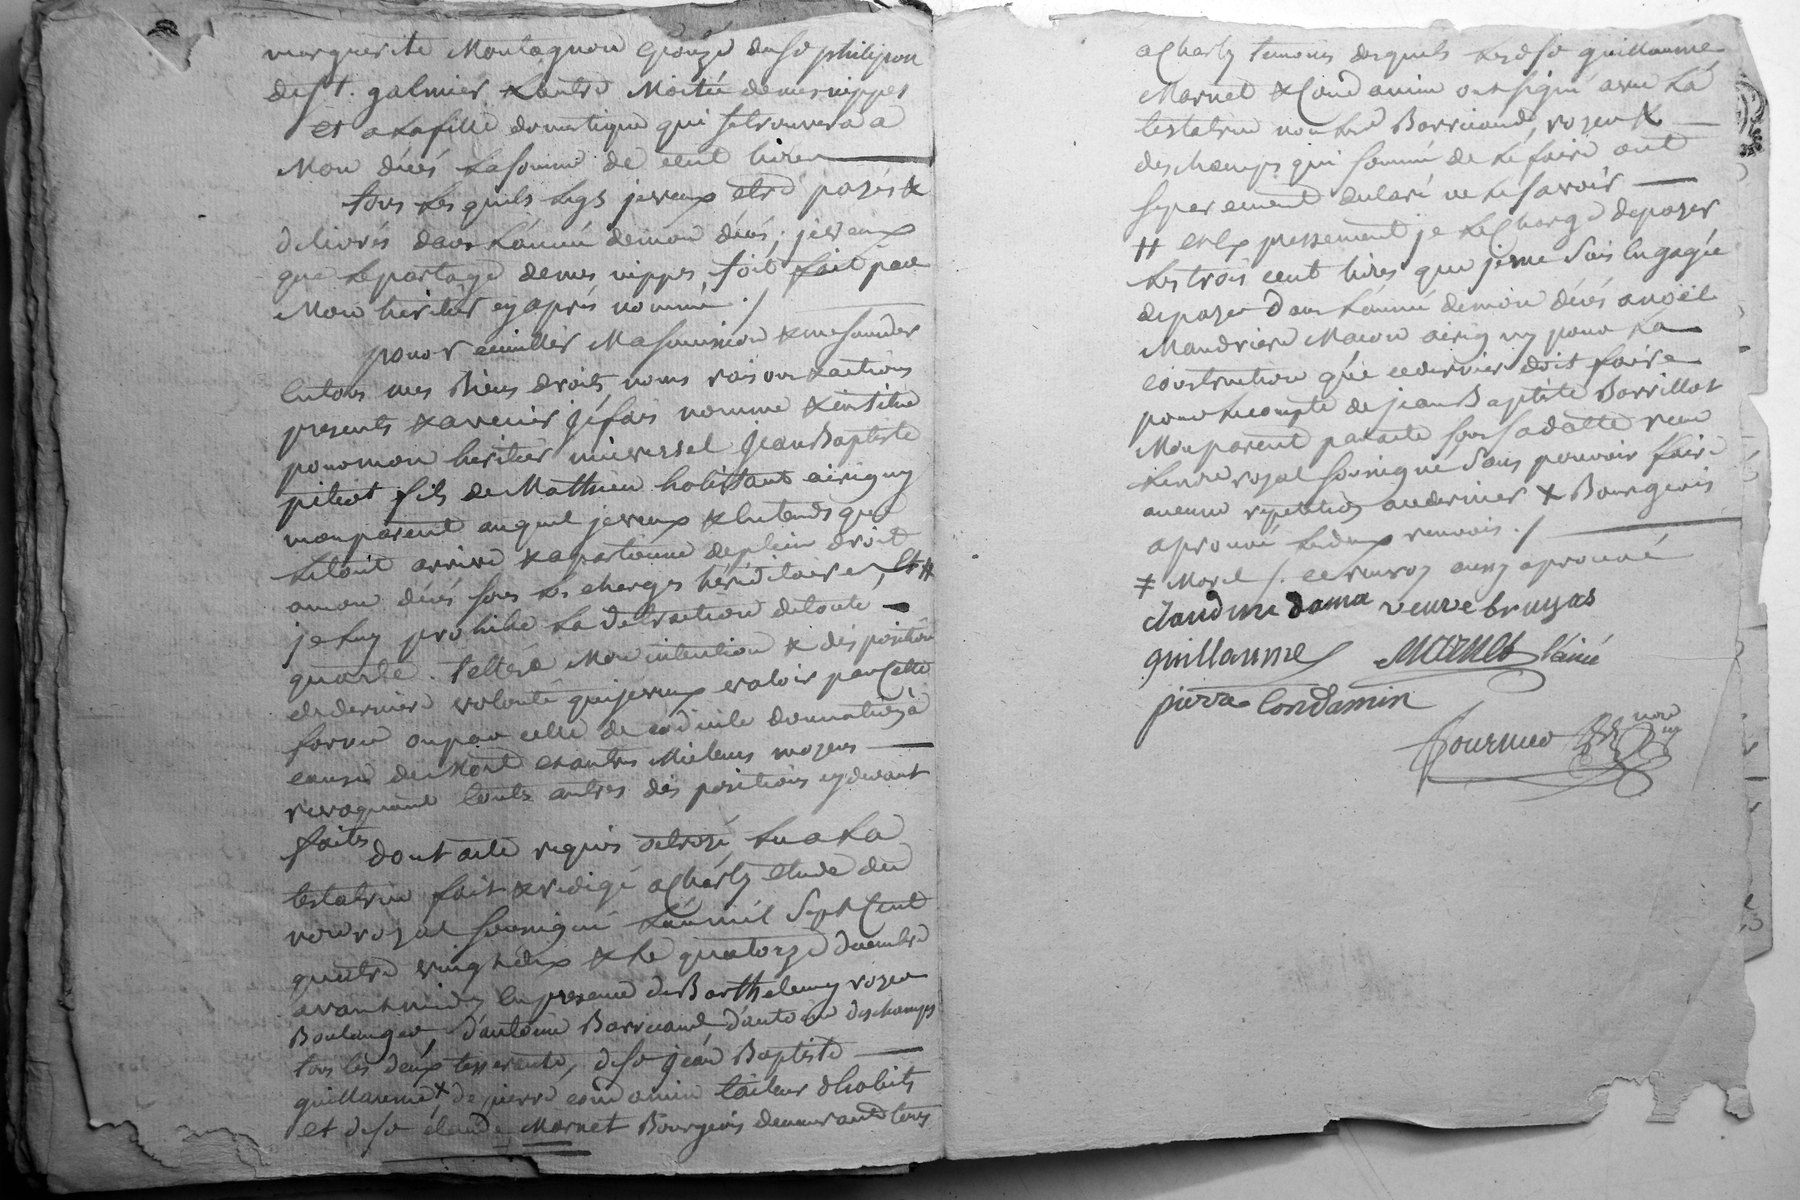 marguerite Montagnon Epouze du sr philipon
de st. galmier & l'autre Moitié de mes nippes
et a la fille domestique qui se trouvera a
Mon décés la somme de cent livres
tous les quels legs je veux etre payés &
delivrés dans l'année de mon décés; je veux
que le partage de mes nippes soit fait par
Mon heritier cy aprés nommé ./
pour recuillir Ma succession & me succeder
En tous mes Biens droits noms raisons & actions
presents & avenir jé fais nomme & institue
pour mon heritier universel Jean Baptiste
pitiot fils de Mathieu habitant a irigny
mon parent au quel je veux & Entends que
le tout arrive & apartienne de plein droit
a mon décés sous les charges héréditaires, Et #
je luy prohibe la detraction de toute
quarte. telle est Mon intention & disposition
de derniere volonté que je veux valoir par Cette
forme ou par celle de codicile donnation à
cause de Mort et autres Meilleurs moyens
revoquant toutes autres dispositions cy devant
faites
dont acte requis octroyé, Lu a La
testatrice fait & redigé a Charly Etude du
nore royal soussigné L'an mil Sept Cent
quatre vingt deux & le quatorze decembre
avant midy En presence de Barthelemy royer
Boulanger, d'antoine Barricand, d'antoine deschamps
tous les deux tisserants, de sr jean Baptiste
guillaume ≠ de pierre condamin tailleur d'habits
et de sr claude Marnet Bourgeois demeurant tous
a Charly temoins des quels les dts srs guillaume
Marnet & Condamin ont signé avec La
testatrice non les dts Barricand, royer &
deschamps qui sommé de le faire ont
separement declaré ne le savoir
# et Expressement je le Charge de payer
les trois cent livres que je me suis Engagée
de payer dans l'année de mon décés a noël
Maudrier Macon a irigny pour la
construction que ce dernier doit faire
pour le compte de jean Baptiste Barrillot
Mon parent par acte sous sa datte recu
le nore royal soussigné Sans pouvoir faire
aucune repetition au dernier & Bourgeois
aprouvé les deux renvois ./
≠ Morel /. ce renvoy aussy aprouvé
claudine dama veuve bruyas
guillaume Marnet l'ainé
pierre Condamin
fournier nore